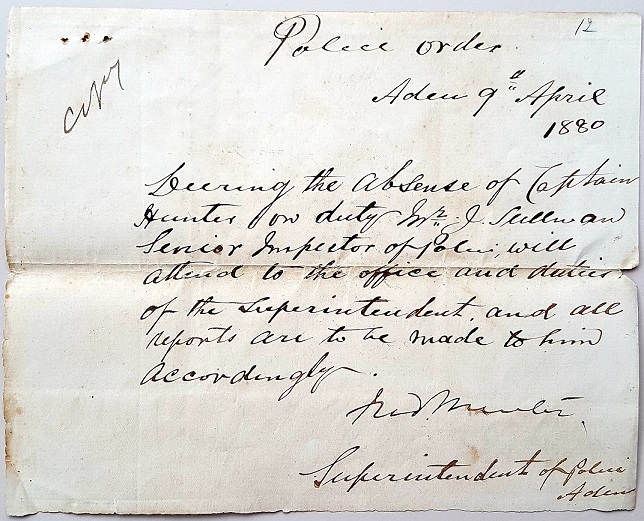 12
Police order
Copy
Aden 9" April
1880
Deering the absense of Captain
Hunter on duty Mr. J. Sullivan
Senior Inspector of Police, will
attend to the office and duties
of the Superintendent, and all
reports are to be made to him
accordingly.
Hunter
Superintendent of Police
Aden